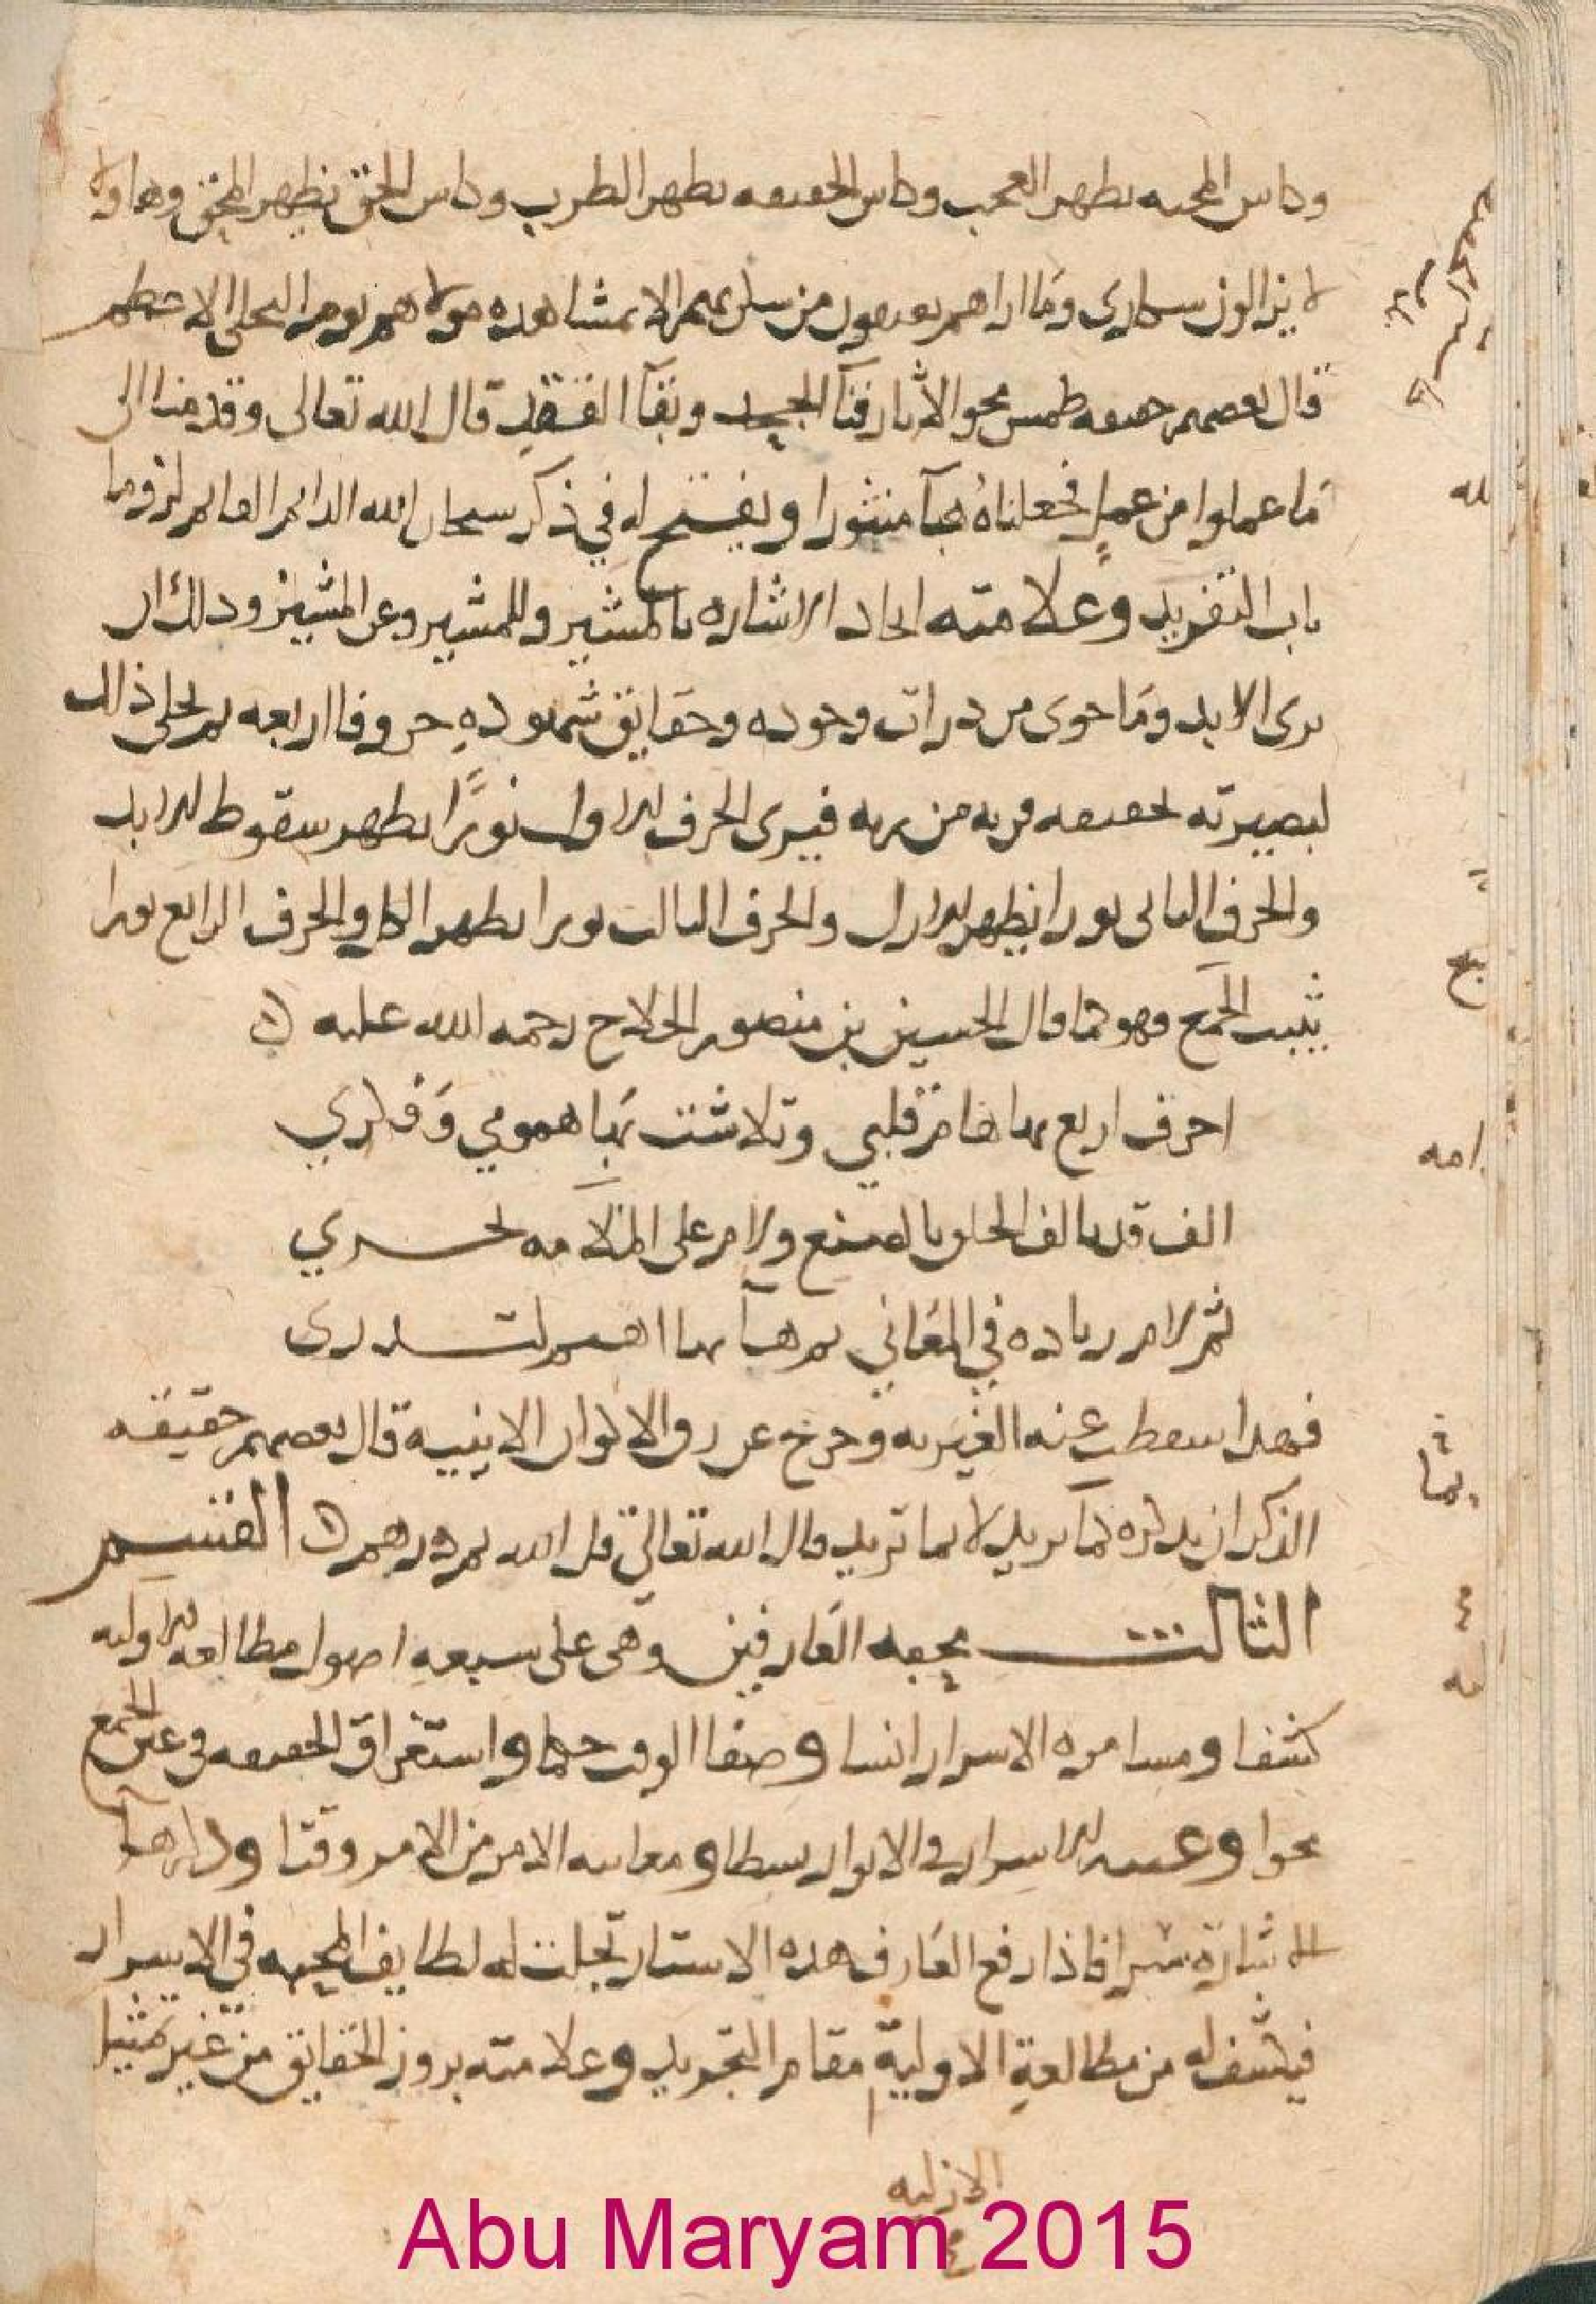 وكاس المحبه يظهر العجب وكاس الحقيقه يظهر الطرب وكاس الحق يظهر المحق وهاولا
لا يزالون سكارى وما اراهم يفيقون من سكرتهم الا بمشاهده مولاهم يوم التجلى الاعظم
قال بعضهم حقيقه طمس محو الاثار فنآ الجسد وبقآ التفقد قال الله تعالى وقدمنا الى
ما عملوا من عمل فجعلناهُ هبآ منثورا ويفتتح له في ذكر سبحان الله الدائم القائم لزوما
باب التفريد وعلامته اتحاد الاشاره بالمشير وللمشير وعن المشير وذلك ان
يرى الابد وما حوى من ذرات وجوده وحقايق شهودهِ حروفا اربعه ثم تجلى ذلك
لبصيرته بحقيقه قربه من ربه فيرى الحرف الاول نورًا يظهر سقوط الابد
والحرف الثانى نورا يظهر الازل والحرف الثالث نورا يظهر الكل والحرف الرابع نورا
يثبت الجمع وهو كما قال الحسين بن منصور الحلاج رحمه الله عليه
احرف اربع بها هام قلبي وتلاشت بها همومي وفكري
الف قد تالف الخلق بالصنع ولام على الملامه تجري
ثم لام زياده في المعاني ثم هآ بها اهيم اتدرى
فهذا سقطت عنه الغيريه وخرج عن رق الاكوان الاينيه قال بعضهم حقيقه
الذكر ان يذكره كما يريد لا كما تريد قال الله تعالى قل الله ثم ذرهم القسم
الثالث محبه العارفين وهى على سبعه اصول مطالعه الاوليه
كشفا ومسامره الاسرار انسا وصفا الوقت حكما واستغراق الحقيقه في عين الجمع
محوا وغيبه الاسرار في الانوار بسطا ومعاينه الامر من الامر وقتا
الاشارة سرا فاذا رفع العارف هذه الاستار تجلت له لطايف المحبه في الاسرار
فيكشف له من مطالعة الاولية مقام التجريد وعلامته بروز الحقايق من غير تمثيل
الازليه
Abu Maryam 2015